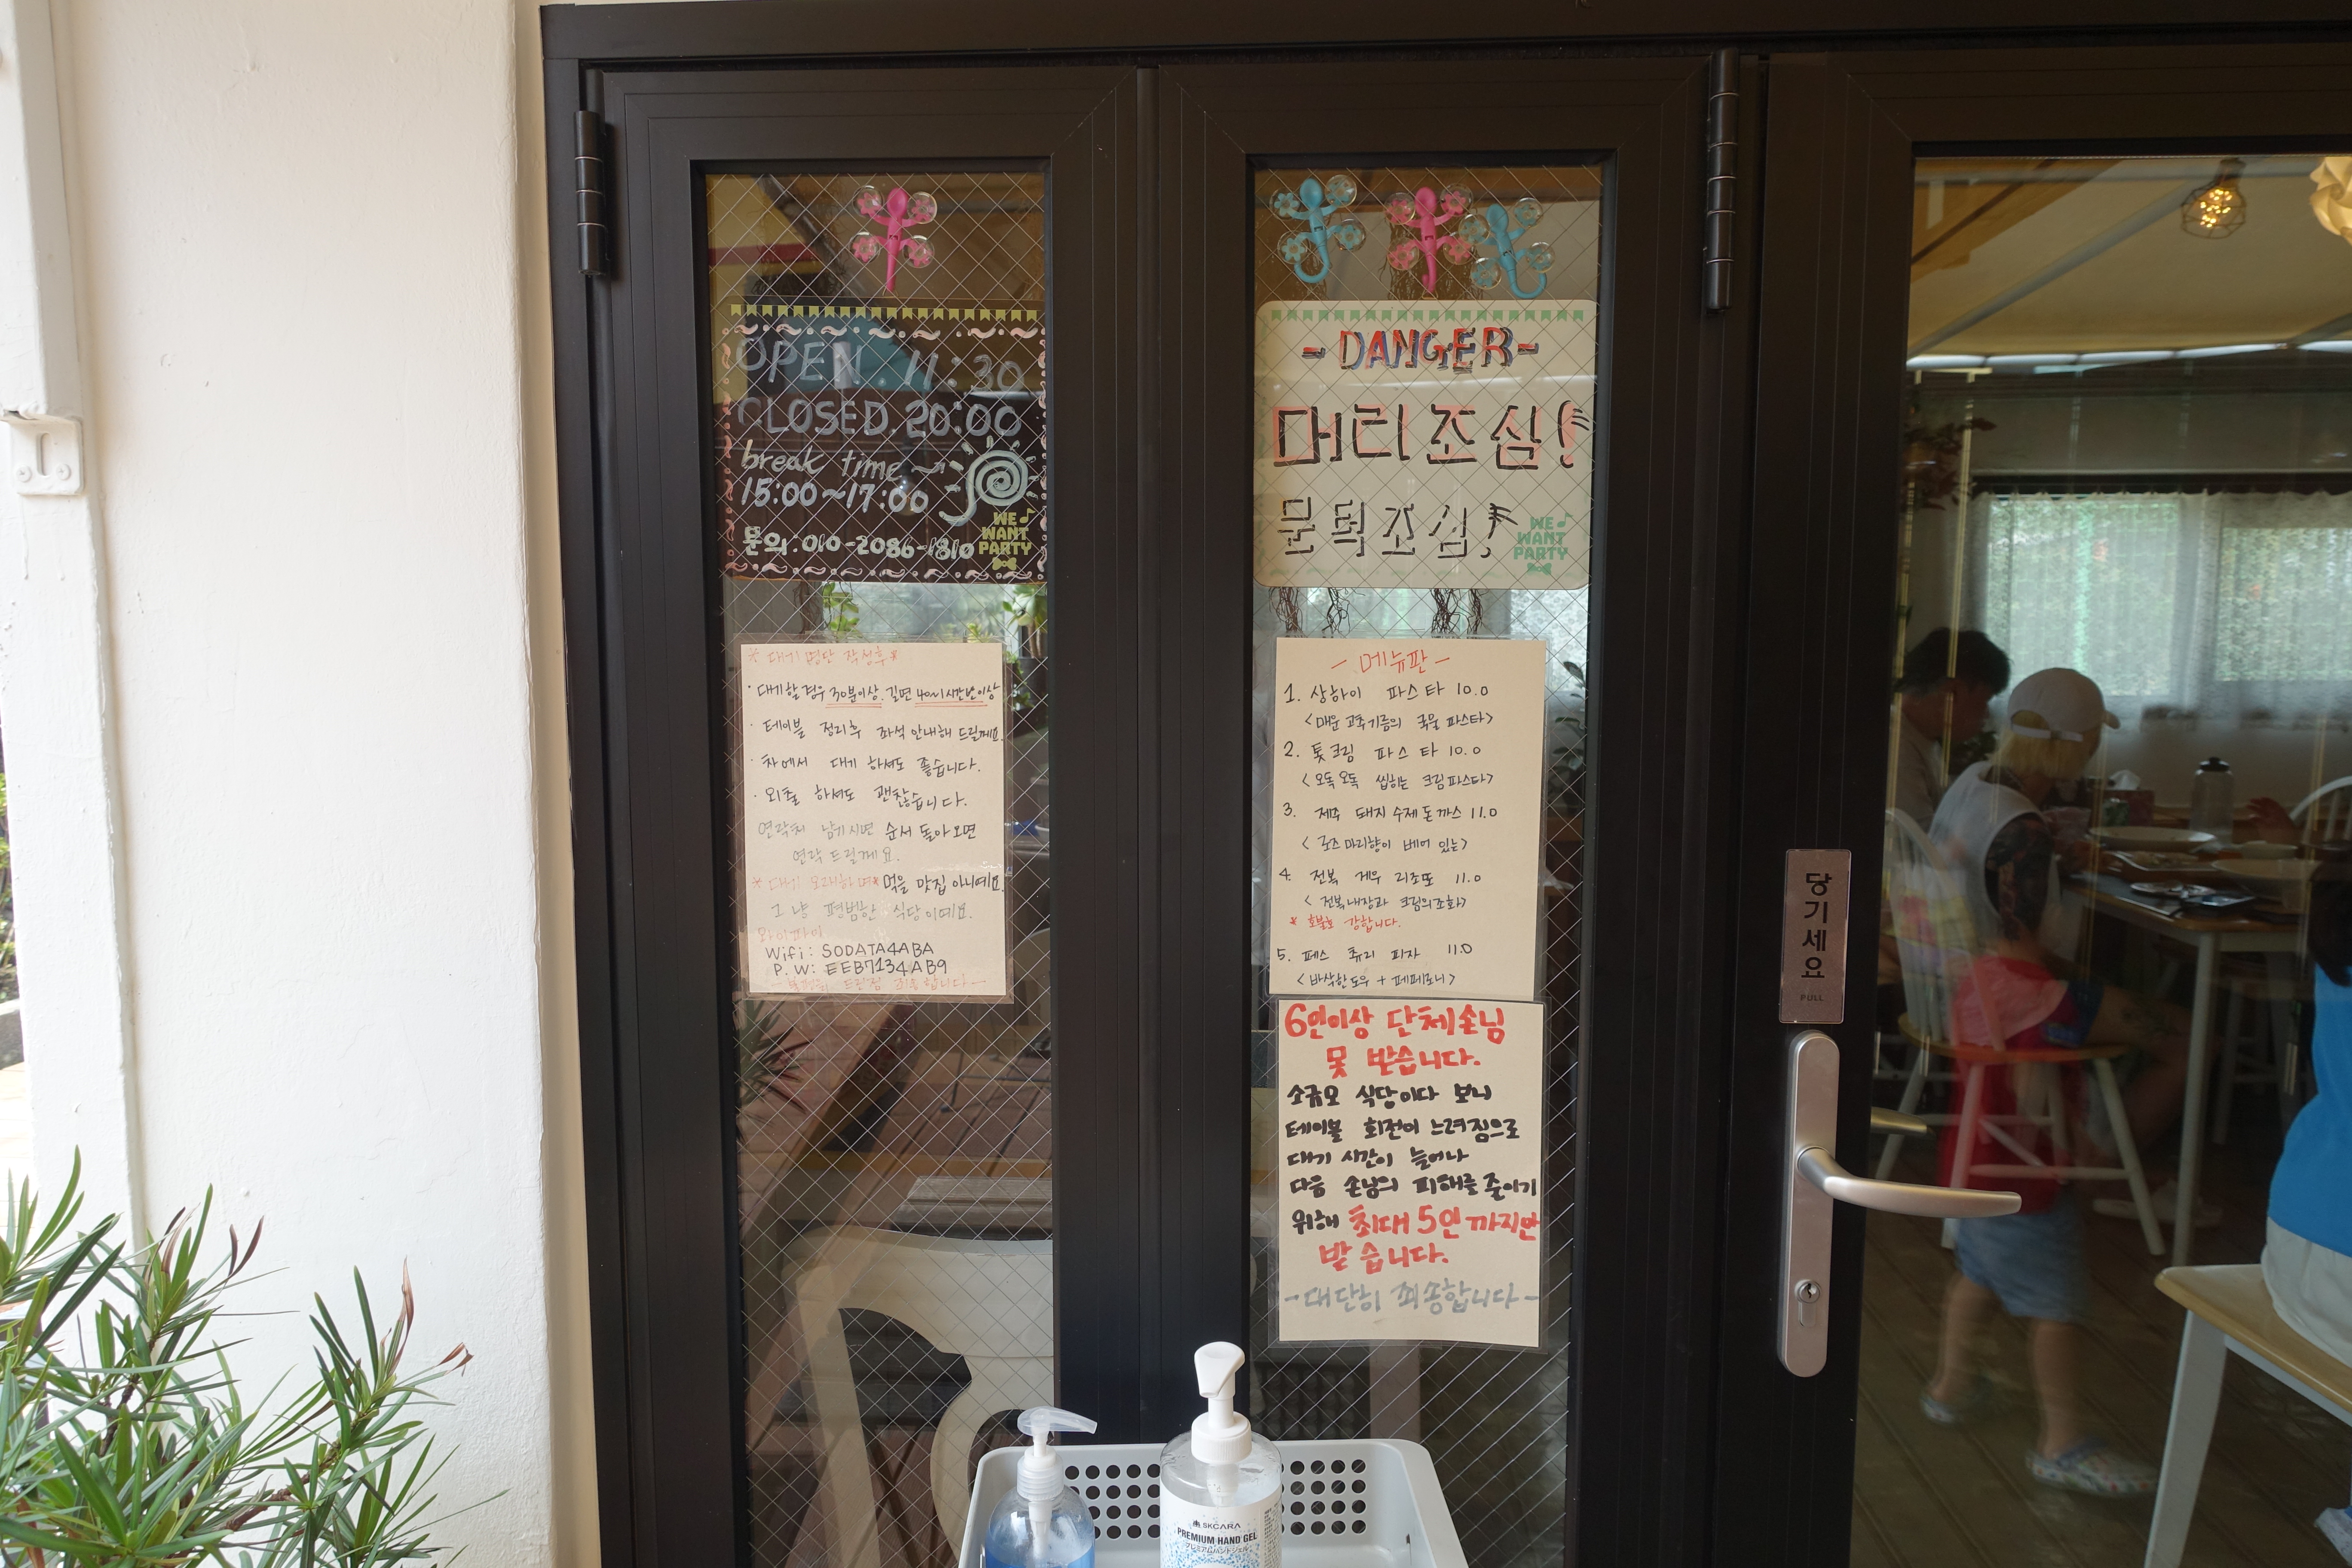 OPEN. 11:30
CLOSED. 20:00
break time
15:00~17:00
문의. 010-2086-1810
WE
WANT
PARTY
* 대기 명단 작성후 *
· 대기할 경우 30분이상. 길면 40에서 1시간반이상
· 테이블 정리후 좌석 안내해 드릴께요.
· 차에서 대기 하셔도 좋습니다.
· 외출 하셔도 괜찮습니다.
연락처 남기시면 순서 돌아오면
연락 드릴께요.
* 대기 오래하며* 먹을 맛집 아니예요.
그냥 평범한 식당이예요.
와이파이
Wifi: SODATA4ABA
P.W: EEB7134AB9
- DANGER -
머리조심!
문턱조심!
WE
WANT
PARTY
- 메뉴판 -
1. 상하이 파스타 10.0
<매운 고추기름의 국물 파스타>
2. 톳크림 파스타 10.0
<오독오독 씹히는 크림파스타>
3. 제주 돼지 수제돈까스 11.0
<로즈마리향이 베어 있는>
4. 전복 게우 리조또 11.0
<전복내장과 크림의조화>
* 호불호 강합니다.
5. 페스츄리 피자 11.0
<바삭한도우 + 페페로니>
6인이상 단체손님
못 받습니다.
소규모 식당이다 보니
테이블 회전이 느려짐으로
대기 시간이 늘어나
다음 손님의 피해를 줄이기
위해 최대 5인 까지만
받습니다.
- 대단히 죄송합니다 -
당기세요
PULL
SKCARA
PREMIUM HAND GEL